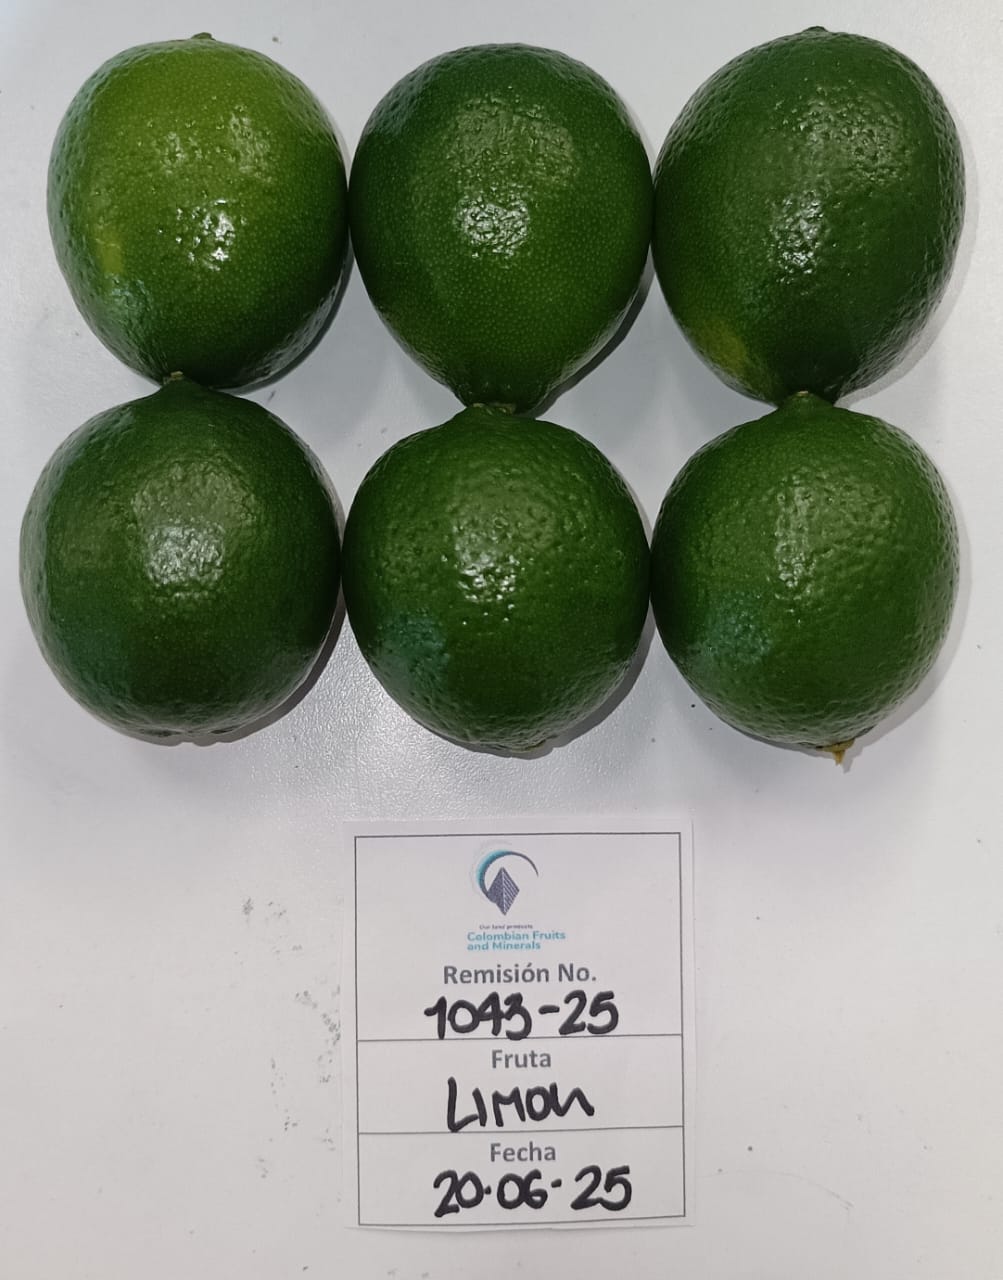 Our land products
Colombian Fruits
and Minerals
Remisión No.
1043-25
Fruta
LIMON
Fecha
20.06.25